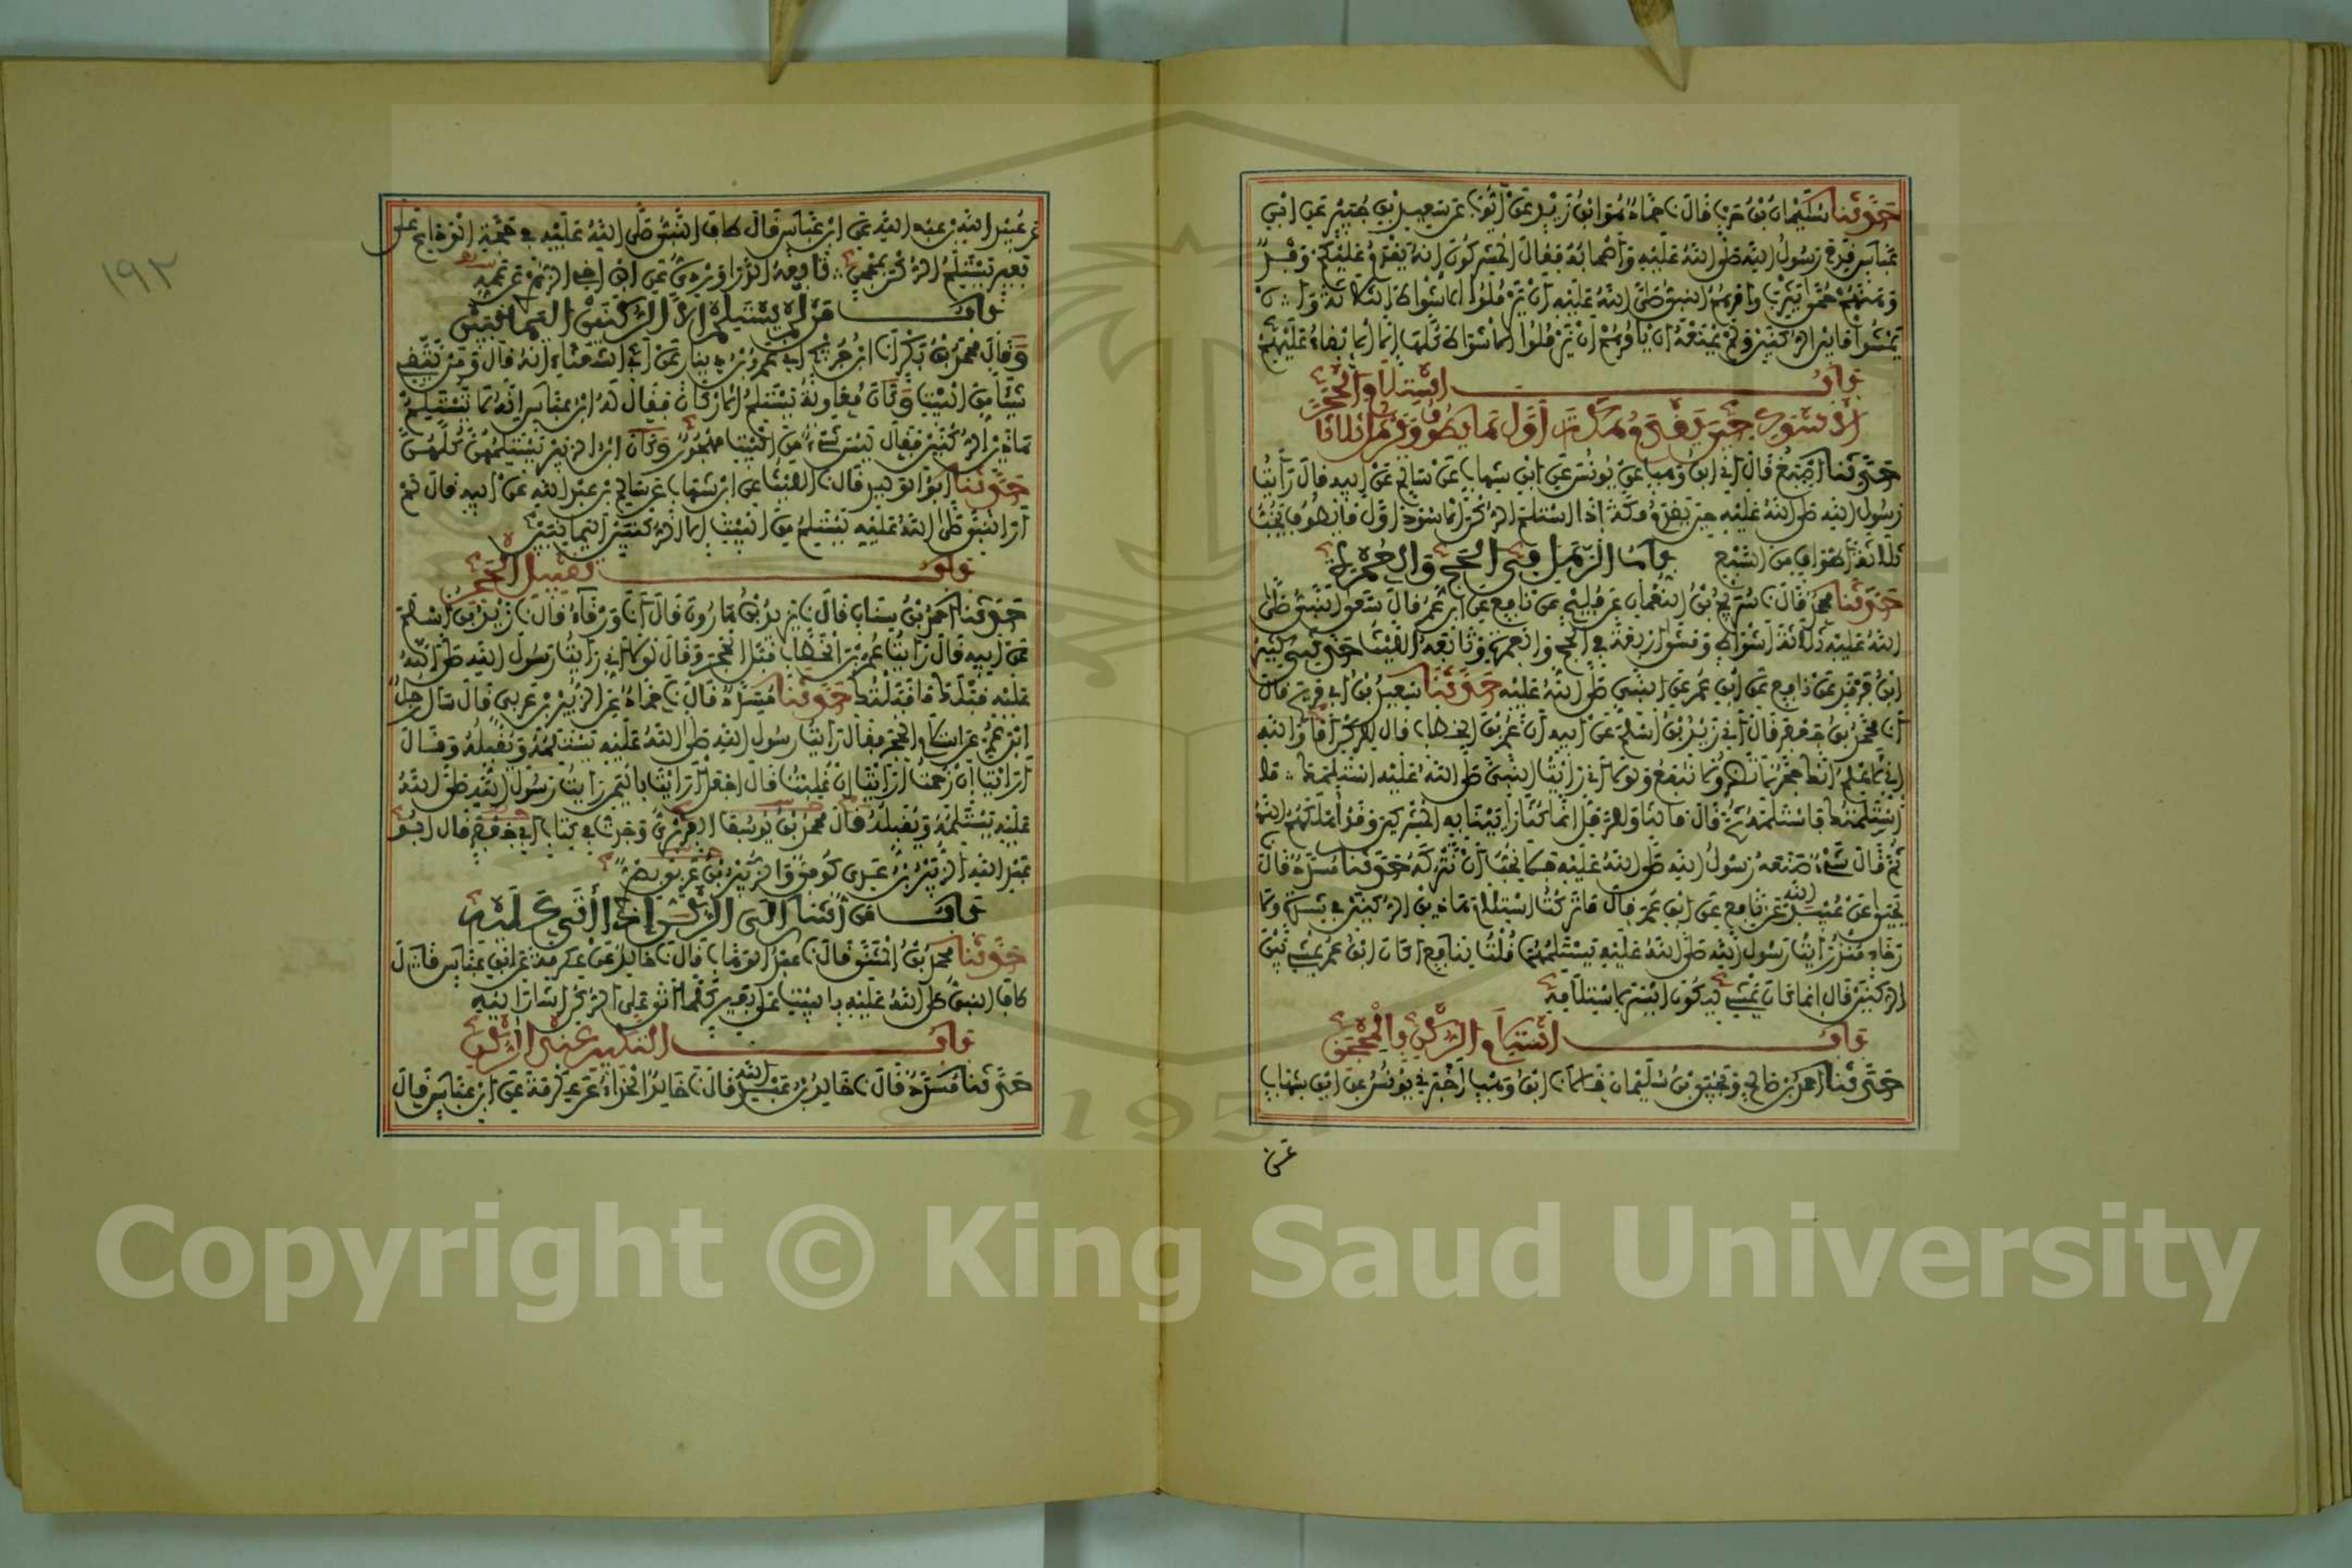 حدثنا سليمان بن حرب قال نا حماد هو ابن زيد عن أيوب عن سعيد بن جبير عن ابن
عباس قدم رسول الله صلى الله عليه وأصحابه فقال المشركون إنه يقدم عليكم وقد
وهنهم حمى يثرب وأمرهم النبي صلى الله عليه أن يرملوا الأشواط الثلاثة وأن
يمشوا ما بين الركنين ولم يمنعه أن يأمرهم أن يرملوا الأشواط كلها إلا الإبقاء عليهم
باب استلام الحجر
الأسود حين يقدم مكة أول ما يطوف ويرمل ثلاثا
حدثنا أصبغ قال أني ابن وهب عن يونس عن ابن شهاب عن سالم عن أبيه قال رأيت
رسول الله صلى الله عليه حين يقدم مكة إذا استلم الركن الأسود أول ما يطوف يخب
ثلاثة أطواف من السبع باب الرمل في الحج والعمرة
حدثنا محمد قال نا سريج بن النعمان عن فليح عن نافع عن ابن عمر قال سعى النبي صلى
الله عليه ثلاثة أشواط ومشى أربعة في الحج والعمرة وتابعه الليث حدثني كثير
ابن فرقد عن نافع عن ابن عمر عن النبي صلى الله عليه حدثنا سعيد بن أبي مريم قال
أنا محمد بن جعفر قال أني زيد بن أسلم عن أبيه أن عمر بن الخطاب قال للركن أما والله
إني لأعلم أنك حجر لا تضر ولا تنفع ولولا أني رأيت النبي صلى الله عليه استلمك ما
استلمتك فاستلمه ثم قال ما لنا وللرمل إنما كنا رأينا به المشركين وقد أهلكهم الله
ثم قال شيء صنعه رسول الله صلى الله عليه فما نحب أن نتركه حدثنا مسدد قال
يحيى عن عبيد الله عن نافع عن ابن عمر قال ما تركت استلام هاذين الركنين في شدة ولا
رخاء منذ رأيت رسول الله صلى الله عليه يستلمهما قلت لنافع أكان ابن عمر يمشي بين
الركنين قال إنما كان يمشي ليكون أيسر لاستلامه
باب استلام الركن بالمحجن
حدثنا أحمد بن صالح ويحيى بن سليمان قالا نا ابن وهب أخبرني يونس عن ابن شهاب
عن
١٩٢
عن عبيد الله بن عبد الله عن ابن عباس قال طاف النبي صلى الله عليه في حجة الوداع على
بعير يستلم الركن بمحجن تابعه الدراوردي عن ابن أخي الزهري عن عمه
باب من لم يستلم إلا الركنين اليمانيين
وقال محمد بن بكر أنا ابن جريج أني عمرو بن دينار عن أبي الشعثاء أنه قال ومن يتقي
شيئا من البيت وكان معاوية يستلم الأركان فقال له ابن عباس إنه لا نستلم
هاذين الركنين فقال ليس شيء من البيت مهجور وكان ابن الزبير يستلمهن كلهن
حدثنا أبو الوليد قال نا الليث عن ابن شهاب عن سالم بن عبد الله عن أبيه قال لم
أر النبي صلى الله عليه يستلم من البيت إلا الركنين اليمانيين
باب تقبيل الحجر
حدثنا أحمد بن سنان قال نا يزيد بن هارون قال أنا ورقاء قال نا زيد بن أسلم
عن أبيه قال رأيت عمر بن الخطاب قبل الحجر وقال لولا أني رأيت رسول الله صلى الله
عليه قبلك ما قبلتك حدثنا مسدد قال نا حماد عن الزبير بن عربي قال سأل رجل
ابن عمر عن استلام الحجر فقال رأيت رسول الله صلى الله عليه يستلمه ويقبله وقال
أرأيت إن زحمت أرأيت إن غلبت قال اجعل أرأيت باليمن رأيت رسول الله صلى الله
عليه يستلمه ويقبله قال محمد بن يوسف الفربري وجدت في كتاب أبي جعفر قال أبو
عبد الله الزبير بن عدي كوفي والزبير بن عربي بصري
باب من أشار إلى الركن إذا أتى عليه
حدثنا محمد بن المثنى قال نا عبد الوهاب قال نا خالد عن عكرمة عن ابن عباس قال
طاف النبي صلى الله عليه بالبيت على بعير كلما أتى على الركن أشار إليه
باب التكبير عند الركن
حدثنا مسدد قال نا خالد بن عبد الله قال نا خالد الحذاء عن عكرمة عن ابن عباس قال
Copyright © King Saud University
1957